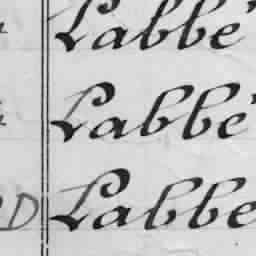 Labbe'
Labbe'
D Labbe